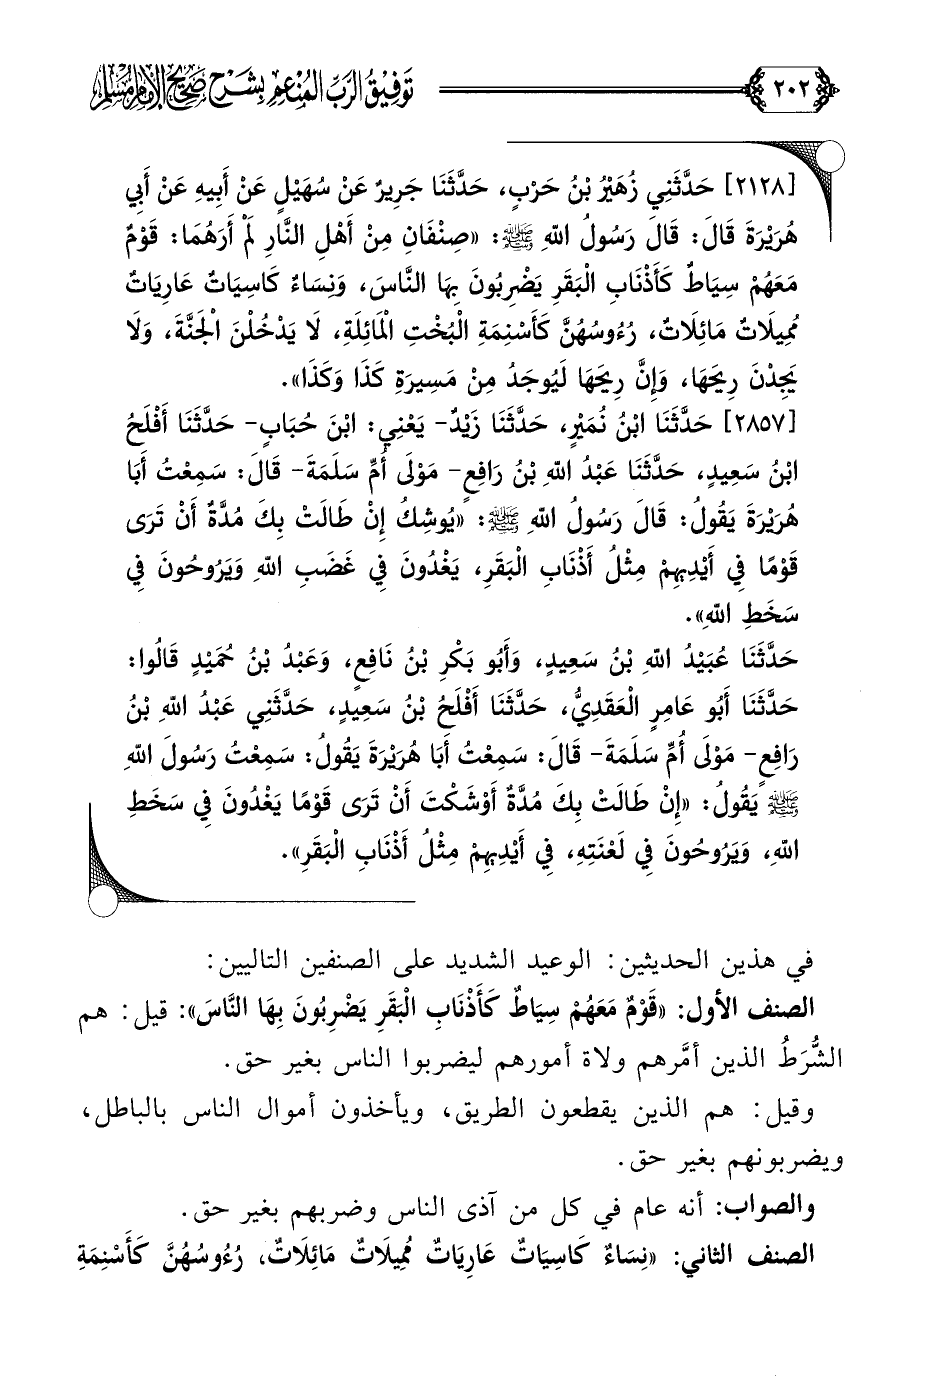 ٢٠٢ توفيق الرب المنعم بشرح صحيح الإمام مسلم
[٢١٢٨] حَدَّثَنِي زُهَيْرُ بْنُ حَرْبٍ، حَدَّثَنَا جَرِيرٌ عَنْ سُهَيْلٍ عَنْ أَبِيهِ عَنْ أَبِي
هُرَيْرَةَ قَالَ: قَالَ رَسُولُ اللهِ ﷺ: «صِنْفَانِ مِنْ أَهْلِ النَّارِ لَمْ أَرَهُمَا: قَوْمٌ
مَعَهُمْ سِيَاطٌ كَأَذْنَابِ الْبَقَرِ يَضْرِبُونَ بِهَا النَّاسَ، وَنِسَاءٌ كَاسِيَاتٌ عَارِيَاتٌ
مُمِيلَاتٌ مَائِلَاتٌ، رُءُوسُهُنَّ كَأَسْنِمَةِ الْبُخْتِ الْمَائِلَةِ، لَا يَدْخُلْنَ الْجَنَّةَ، وَلَا
يَجِدْنَ رِيحَهَا، وَإِنَّ رِيحَهَا لَيُوجَدُ مِنْ مَسِيرَةِ كَذَا وَكَذَا».
[٢٨٥٧] حَدَّثَنَا ابْنُ نُمَيْرٍ، حَدَّثَنَا زَيْدٌ- يَعْنِي: ابْنَ حُبَابٍ- حَدَّثَنَا أَفْلَحُ
ابْنُ سَعِيدٍ، حَدَّثَنَا عَبْدُ اللهِ بْنُ رَافِعٍ- مَوْلَى أُمِّ سَلَمَةَ- قَالَ: سَمِعْتُ أَبَا
هُرَيْرَةَ يَقُولُ: قَالَ رَسُولُ اللهِ ﷺ: «يُوشِكُ إِنْ طَالَتْ بِكَ مُدَّةٌ أَنْ تَرَى
قَوْمًا فِي أَيْدِيهِمْ مِثْلُ أَذْنَابِ الْبَقَرِ، يَغْدُونَ فِي غَضَبِ اللهِ وَيَرُوحُونَ فِي
سَخَطِ اللهِ».
حَدَّثَنَا عُبَيْدُ اللهِ بْنُ سَعِيدٍ، وَأَبُو بَكْرِ بْنُ نَافِعٍ، وَعَبْدُ بْنُ حُمَيْدٍ قَالُوا:
حَدَّثَنَا أَبُو عَامِرٍ الْعَقَدِيُّ، حَدَّثَنَا أَفْلَحُ بْنُ سَعِيدٍ، حَدَّثَنِي عَبْدُ اللهِ بْنُ
رَافِعٍ- مَوْلَى أُمِّ سَلَمَةَ- قَالَ: سَمِعْتُ أَبَا هُرَيْرَةَ يَقُولُ: سَمِعْتُ رَسُولَ اللهِ
ﷺ يَقُولُ: «إِنْ طَالَتْ بِكَ مُدَّةٌ أَوْشَكْتَ أَنْ تَرَى قَوْمًا يَغْدُونَ فِي سَخَطِ
اللهِ، وَيَرُوحُونَ فِي لَعْنَتِهِ، فِي أَيْدِيهِمْ مِثْلُ أَذْنَابِ الْبَقَرِ».
في هذين الحديثين: الوعيد الشديد على الصنفين التاليين:
الصنف الأول: «قَوْمٌ مَعَهُمْ سِيَاطٌ كَأَذْنَابِ الْبَقَرِ يَضْرِبُونَ بِهَا النَّاسَ»: قيل: هم
الشُّرَطُ الذين أمَّرهم ولاة أمورهم ليضربوا الناس بغير حق.
وقيل: هم الذين يقطعون الطريق، ويأخذون أموال الناس بالباطل،
ويضربونهم بغير حق.
والصواب: أنه عام في كل من آذى الناس وضربهم بغير حق.
الصنف الثاني: «نِسَاءٌ كَاسِيَاتٌ عَارِيَاتٌ مُمِيلَاتٌ مَائِلَاتٌ، رُءُوسُهُنَّ كَأَسْنِمَةِ